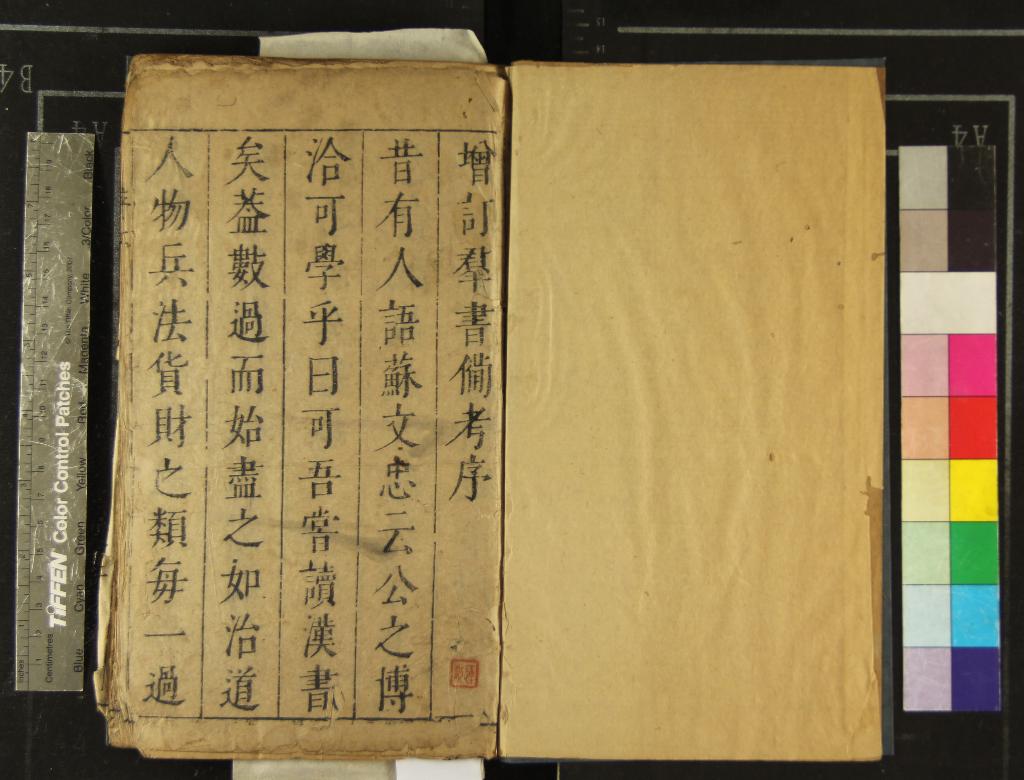 增訂羣書備考序
昔有人語蘇文忠云公之博
洽可學乎曰可吾嘗讀漢書
矣葢數過而始盡之如治道
人物兵法貨財之類每一過
B4
A4
A4
TIFFEN Color Control Patches
Blue Cyan Green Yellow Red Magenta White 3/Color Black
Inches
Centimetres